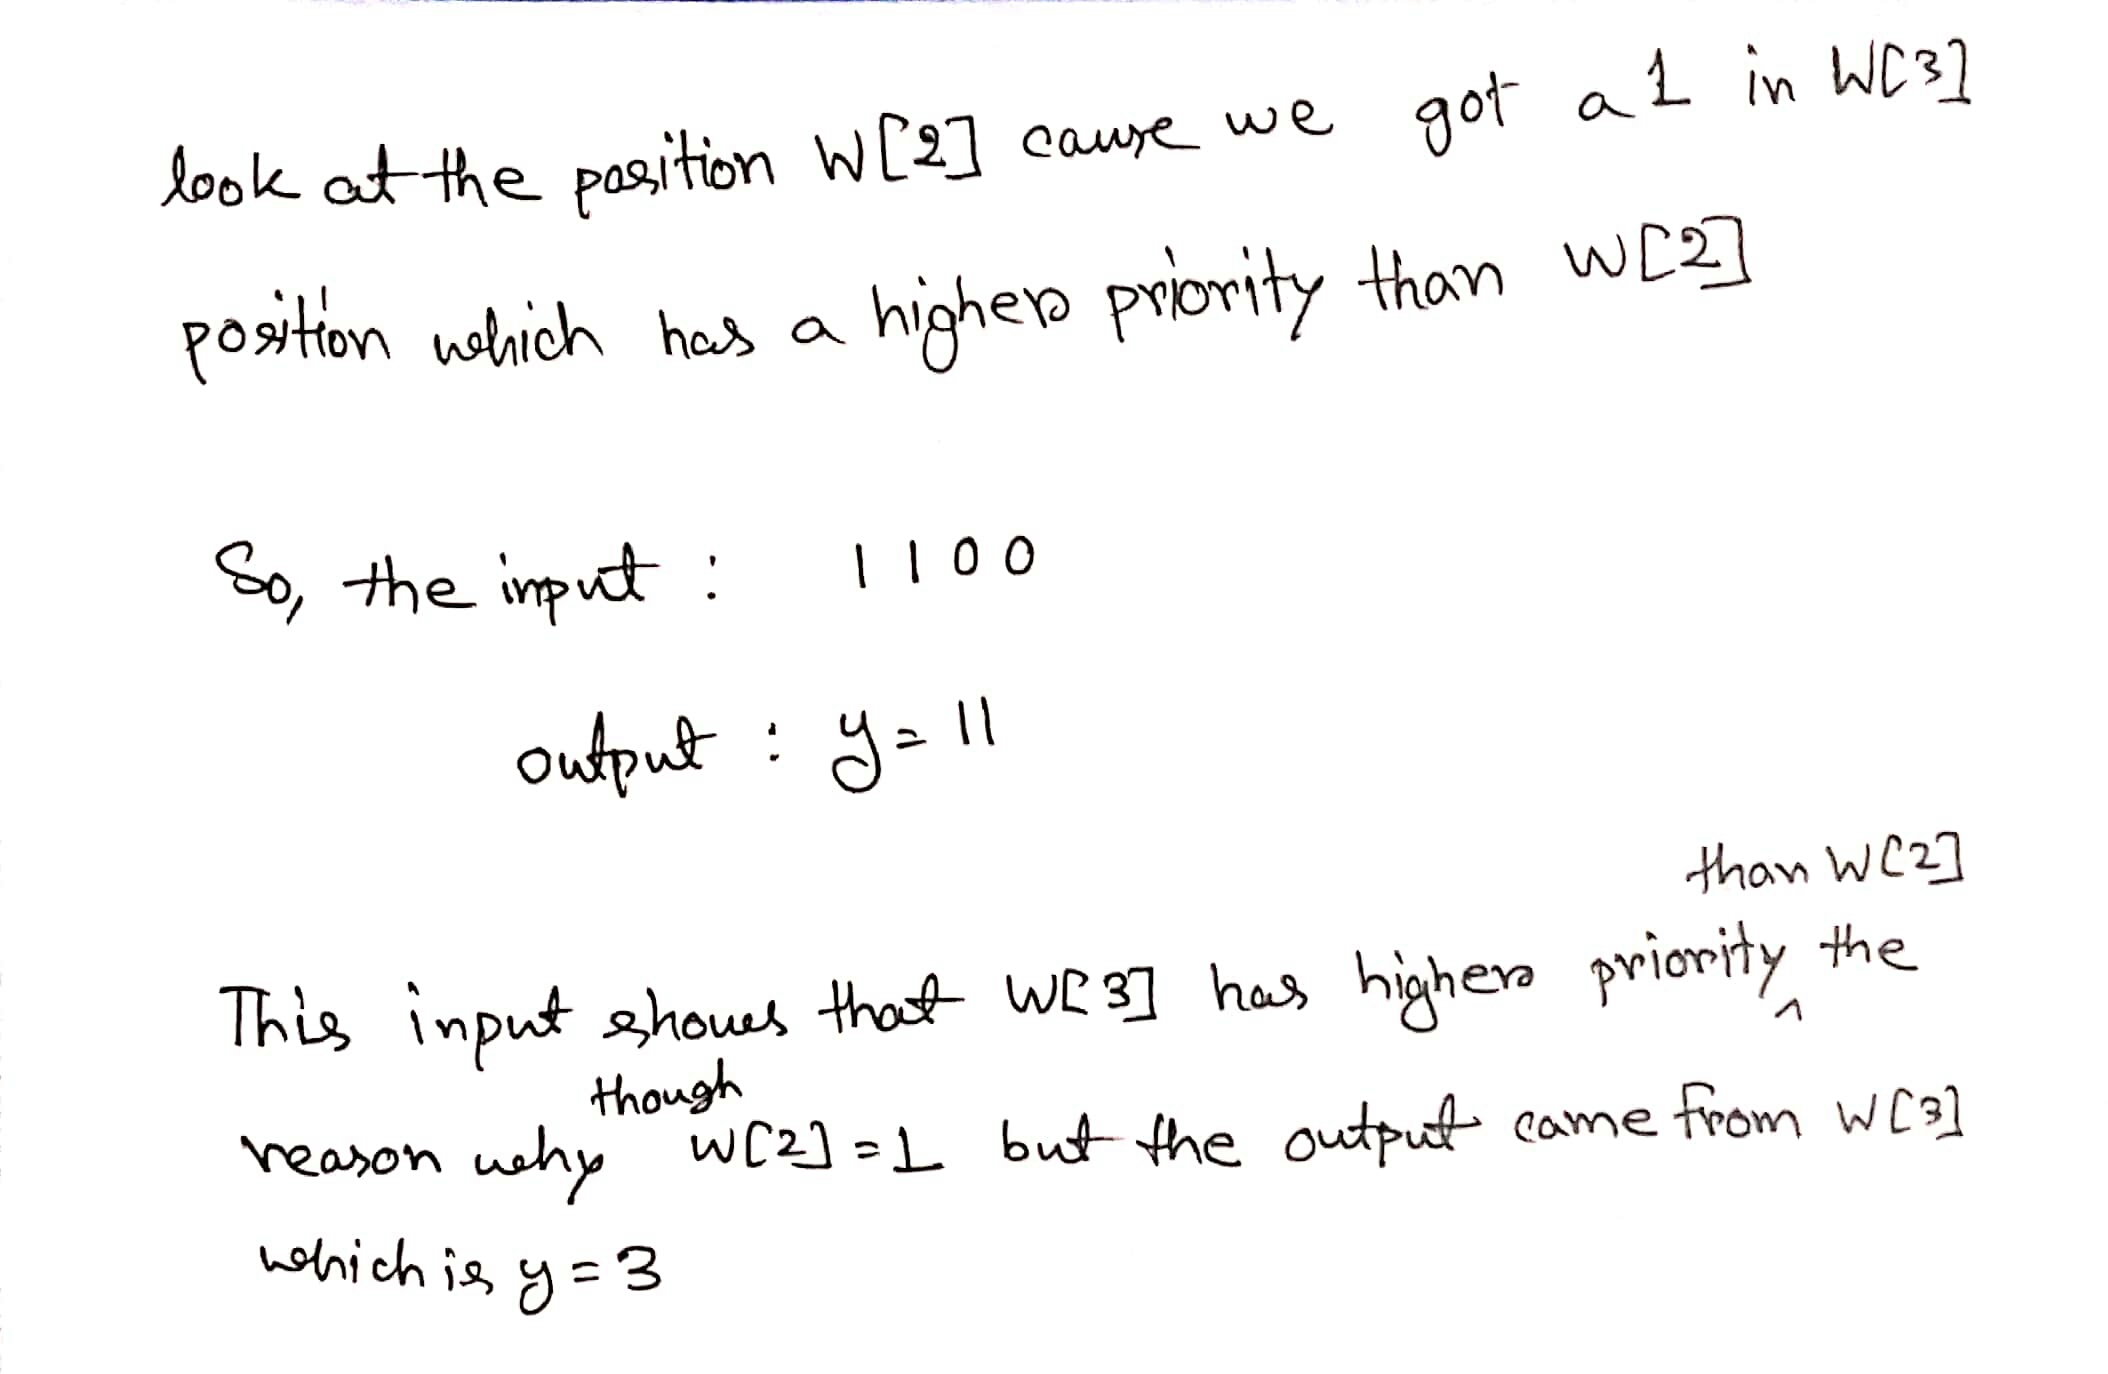 look at the position W[2] cause we got a 1 in W[3]
position which has a higher priority than W[2]
So, the input : 1100
output : y = 11
than W[2]
This input shows that W[3] has higher priority ^ the
though
reason why W[2] = 1 but the output came from W[3]
which is y = 3